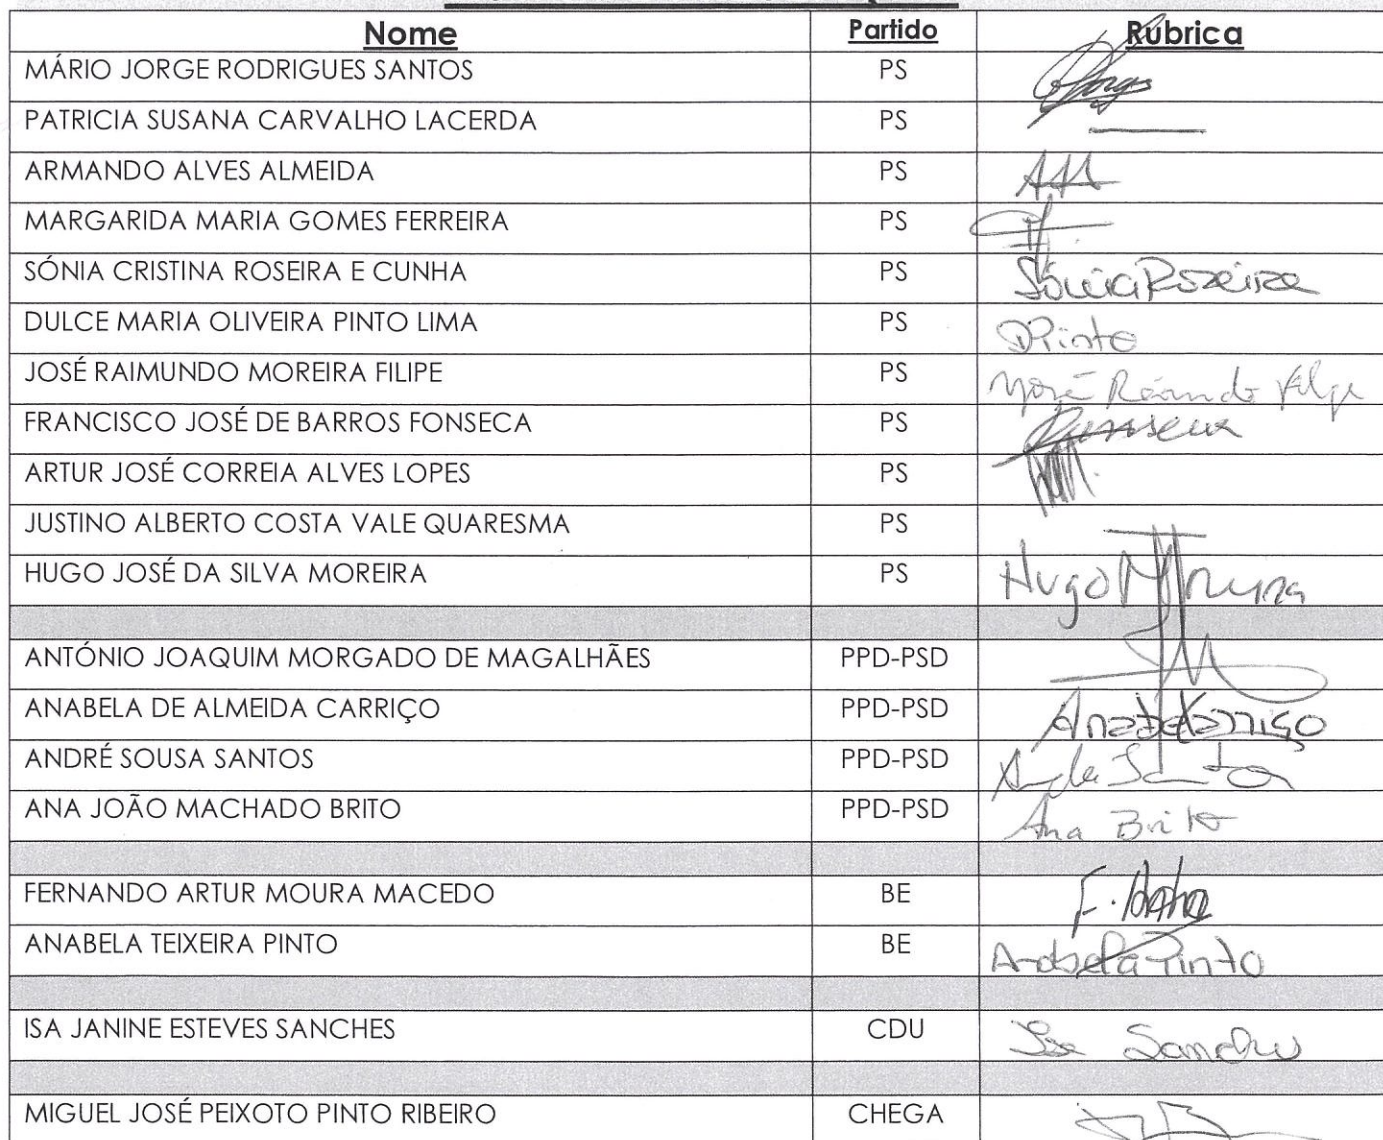 Nome Partido Rúbrica
MÁRIO JORGE RODRIGUES SANTOS PS
PATRICIA SUSANA CARVALHO LACERDA PS
ARMANDO ALVES ALMEIDA PS
MARGARIDA MARIA GOMES FERREIRA PS
SÓNIA CRISTINA ROSEIRA E CUNHA PS Sónia Roseira
DULCE MARIA OLIVEIRA PINTO LIMA PS DPinto
JOSÉ RAIMUNDO MOREIRA FILIPE PS José
FRANCISCO JOSÉ DE BARROS FONSECA PS
ARTUR JOSÉ CORREIA ALVES LOPES PS
JUSTINO ALBERTO COSTA VALE QUARESMA PS
HUGO JOSÉ DA SILVA MOREIRA PS Hugo Moreira
ANTÓNIO JOAQUIM MORGADO DE MAGALHÃES PPD-PSD
ANABELA DE ALMEIDA CARRIÇO PPD-PSD Anabela Carriço
ANDRÉ SOUSA SANTOS PPD-PSD
ANA JOÃO MACHADO BRITO PPD-PSD Ana Brito
FERNANDO ARTUR MOURA MACEDO BE
ANABELA TEIXEIRA PINTO BE Anabela Pinto
ISA JANINE ESTEVES SANCHES CDU Isa Sanches
MIGUEL JOSÉ PEIXOTO PINTO RIBEIRO CHEGA